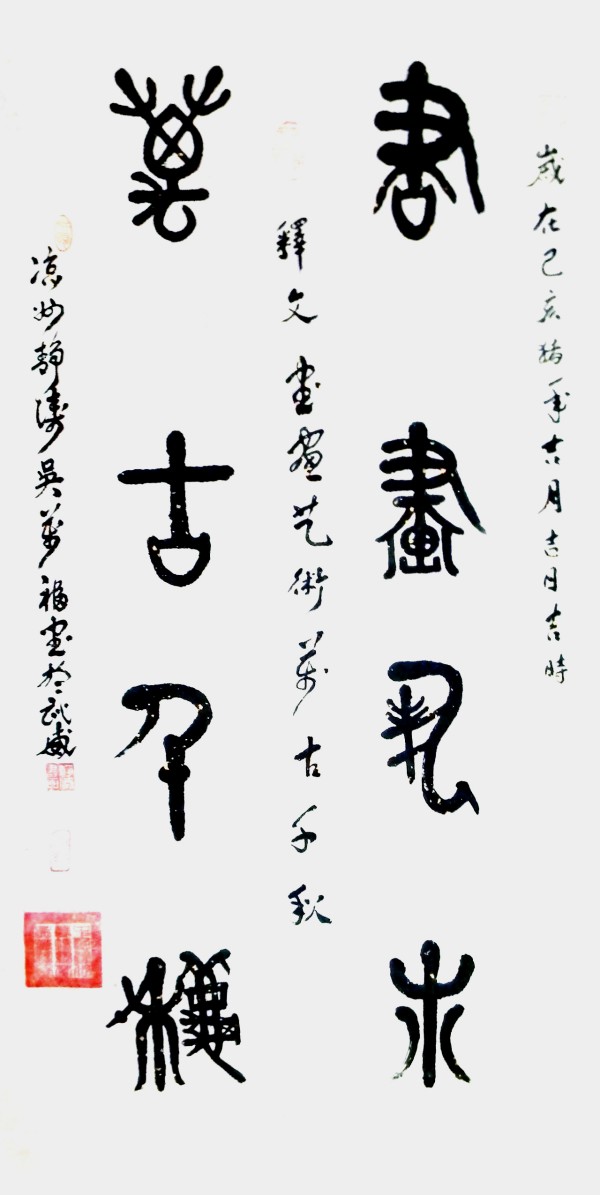 歲在己亥豬年吉月吉日吉時
書畫藝术
釋文書畫艺術萬古千秋
萬古千秋
凉州靜濤吳萬福書於武威